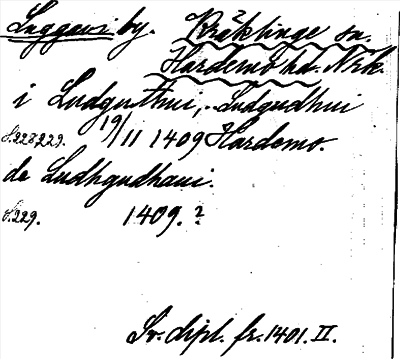 Luggavi by. Kräcklinge sn.
Hardemo hd. Nrk.
i Ludguthui, Ludgudhui
S.228,229. 19/11 1409 Hardemo.
de Ludhgudhaui.
S.229. 1409.?
Sv. dipl. fr. 1401. II.